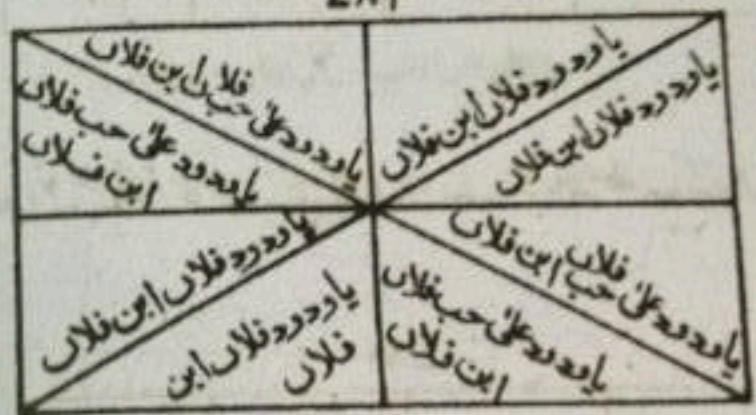 ۷۸۶
یا ودود فلاں ابن فلاں
یا ودود فلاں ابن فلاں
یا ودود علیٰ حب فلاں ابن فلاں
یا ودود علیٰ حب فلاں
ابن فلاں
یا ودود علیٰ حب فلاں ابن فلاں
یا ودود علیٰ حب فلاں
ابن فلاں
یا ودود فلاں ابن فلاں
یا ودود فلاں ابن
فلاں